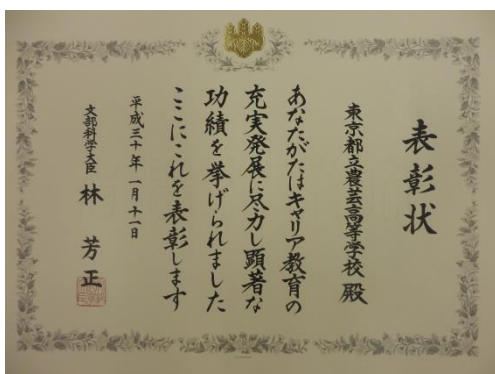 表彰状
東京都立農芸高等学校 殿
あなたがたはキャリア教育の
充実発展に尽力し顕著な
功績を挙げられました
ここにこれを表彰します
平成三十年一月十一日
文部科学大臣 林 芳正